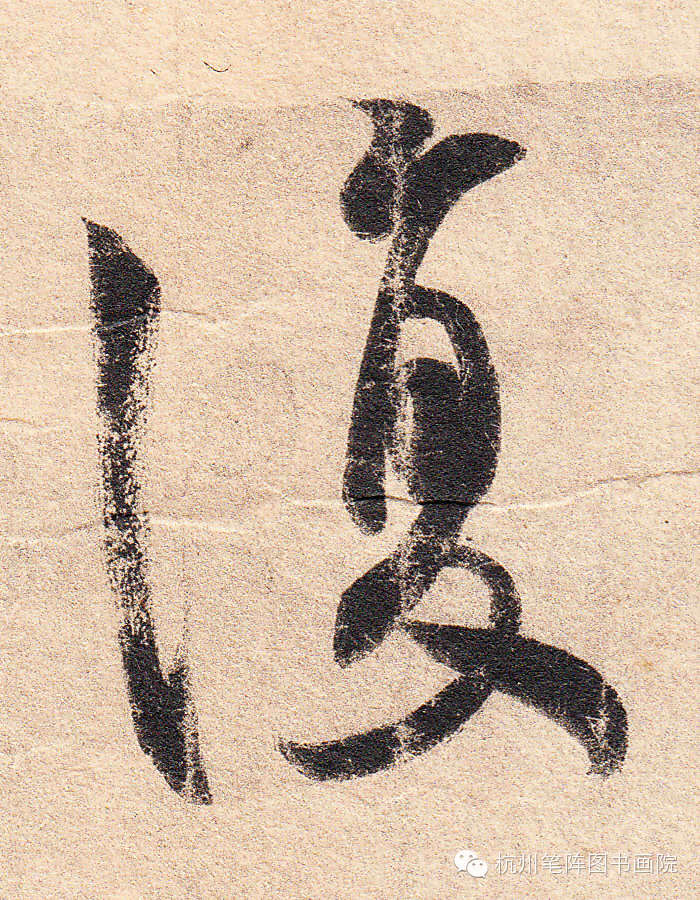 復
杭州笔阵图书画院